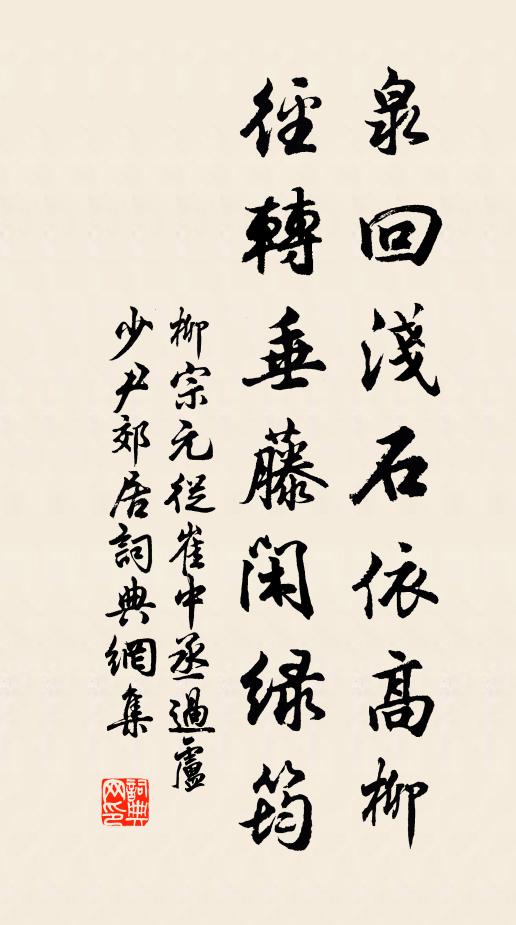 泉回淺石依高柳
徑轉垂藤閑綠筠
柳宗元從崔中丞過盧
少尹郊居詞典網集
詞典
网印